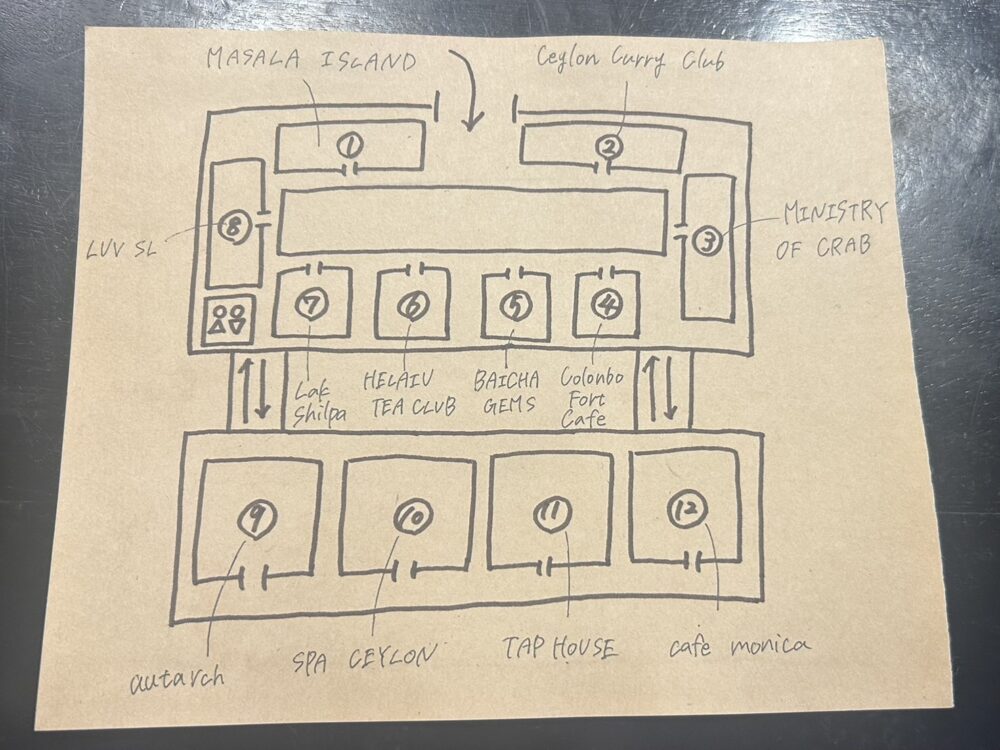 MASALA ISLAND
Ceylon Curry Club
1
2
8
3
LUV SL
MINISTRY
OF CRAB
7
6
5
4
Lak
Shilpa
HELAIU
TEA CLUB
BAICHA
GEMS
Colonbo
Fort
Cafe
9
10
11
12
autarch
SPA CEYLON
TAP HOUSE
cafe monica